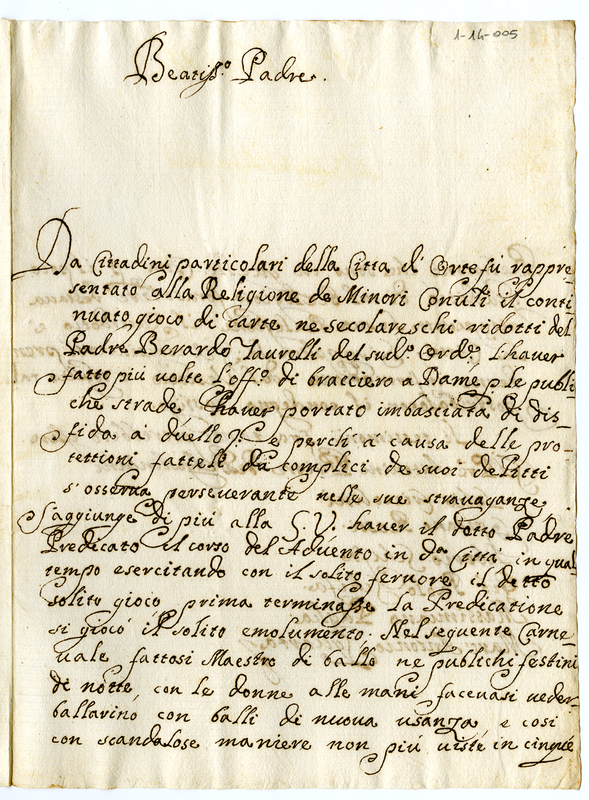 1-14-005
Beatiss.º Padre.
Da Cittadini particolari della Città di Orte fù rappre-
sentato alla Religione de Minori Conu.li il conti
nuato gioco di carte ne secolareschi ridotti del
Padre Berardo Taurelli del sud.º Ord.e, l'hauer
fatto più uolte l'off.º di bracciero a Dame p le publi-
che strade, l'hauer portato imbasciata di dis-
fida a duello; e perche a causa delle pro-
tettioni fatteli da complici de suoi delitti
s'osserua perseuerante nelle sue strauaganze,
s'aggiunge di più alla S.V. hauer il detto Padre
Predicato il corso del Aduento in d.a Città in qual
tempo esercitando con il solito feruore il detto
solito gioco prima terminasse la Predicatione
si giocò il solito emolumento. Nel seguente Carne-
uale fattosi Maestro di ballo ne publichi festini
de notte, con le donne alle mani faceuasi ueder
ballarino con balli di nuoua usanza e così
con scandalose maniere non più uiste in cinque